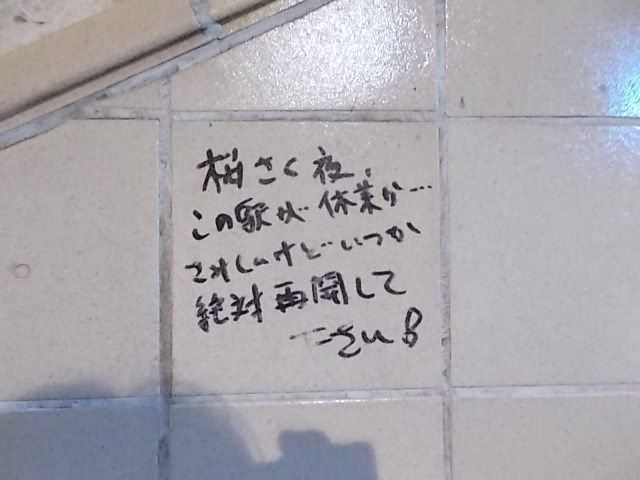 桜さく夜、
この駅が休業か…
さみしいけどいつか
絶対再開して
下さい!